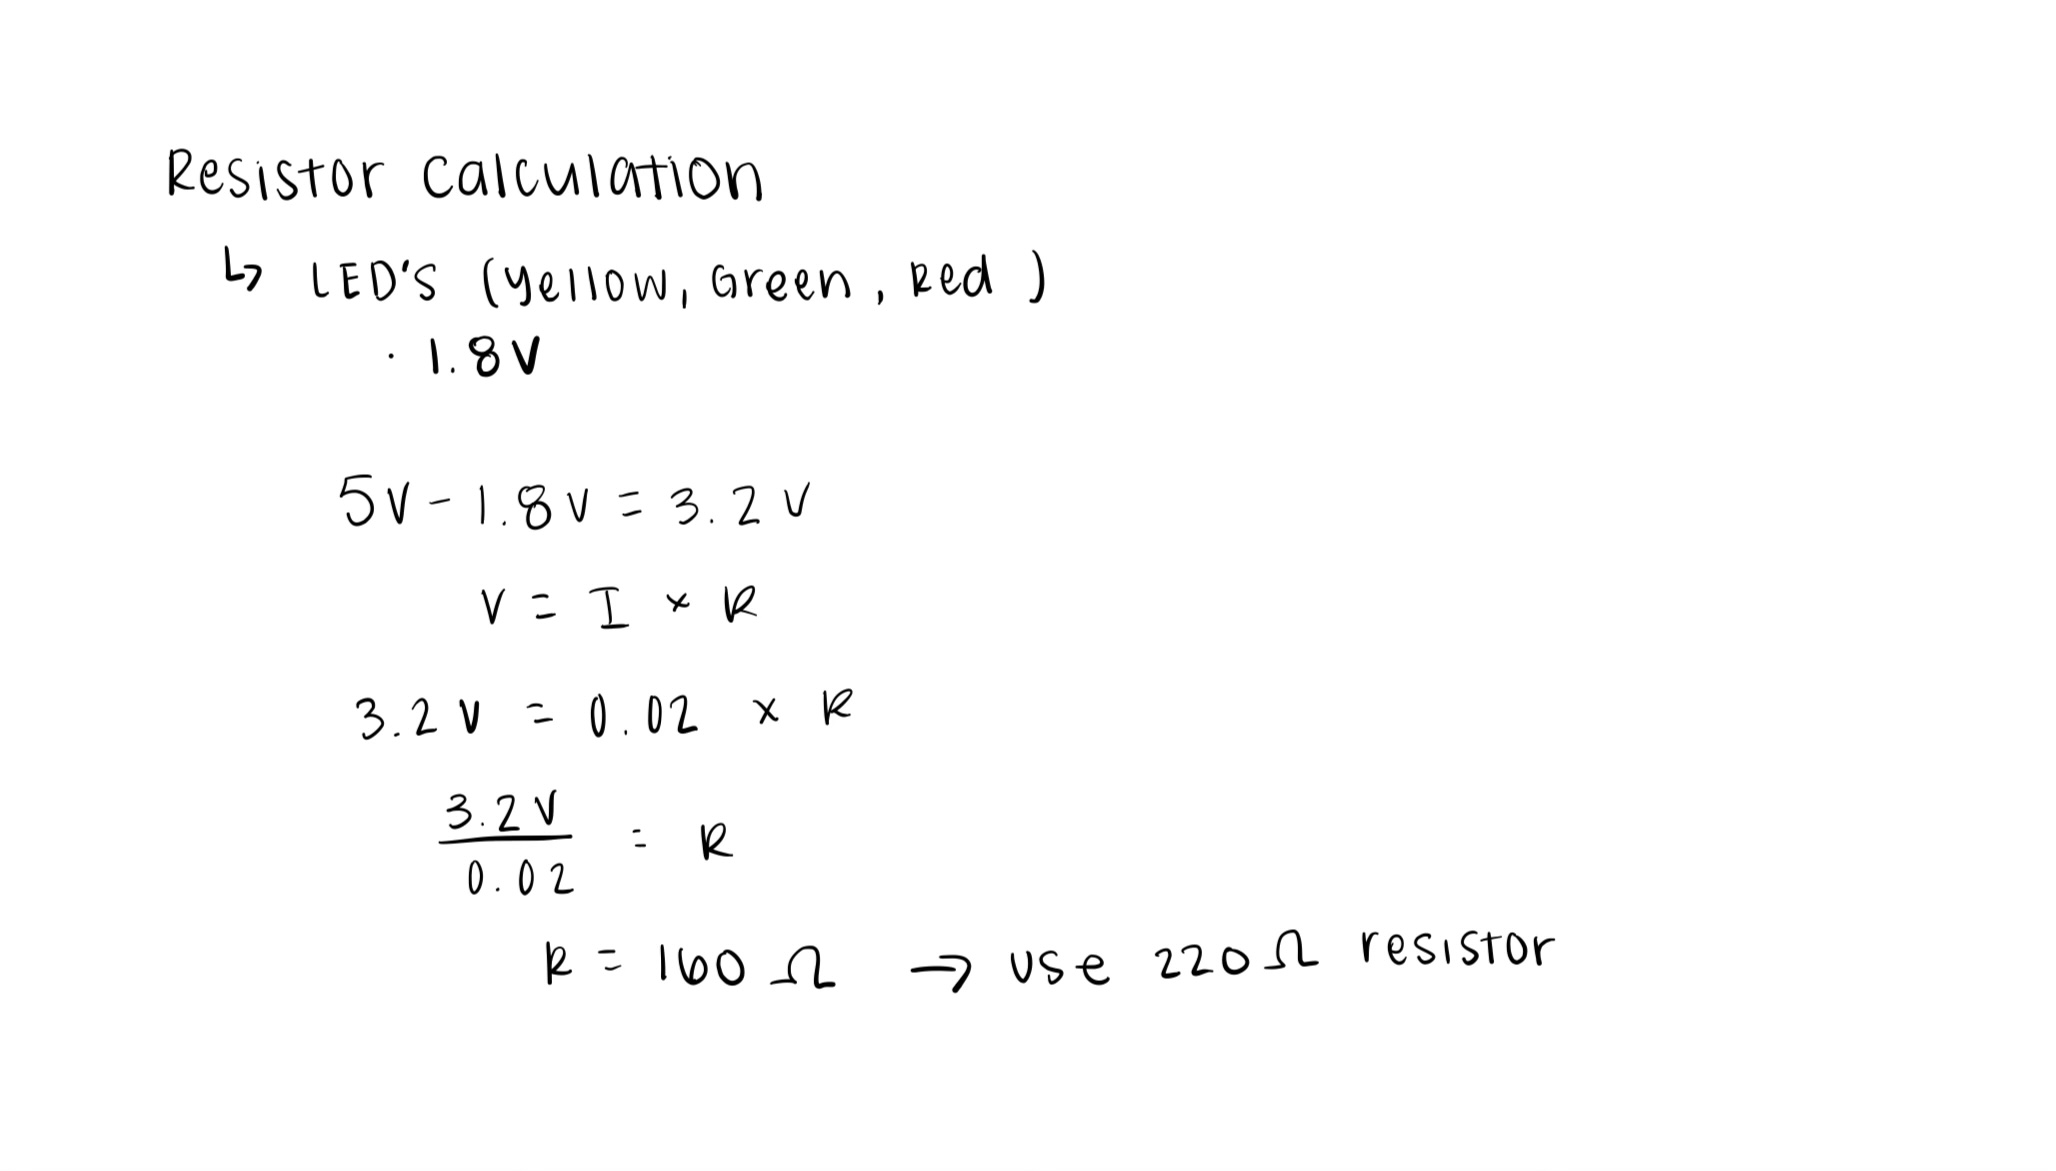 Resistor Calculation
↳ LED'S (Yellow, Green, Red)
· 1.8V
5V - 1.8V = 3.2V
V = I × R
3.2V = 0.02 × R
3.2V
0.02
= R
R = 160 Ω → Use 220Ω resistor